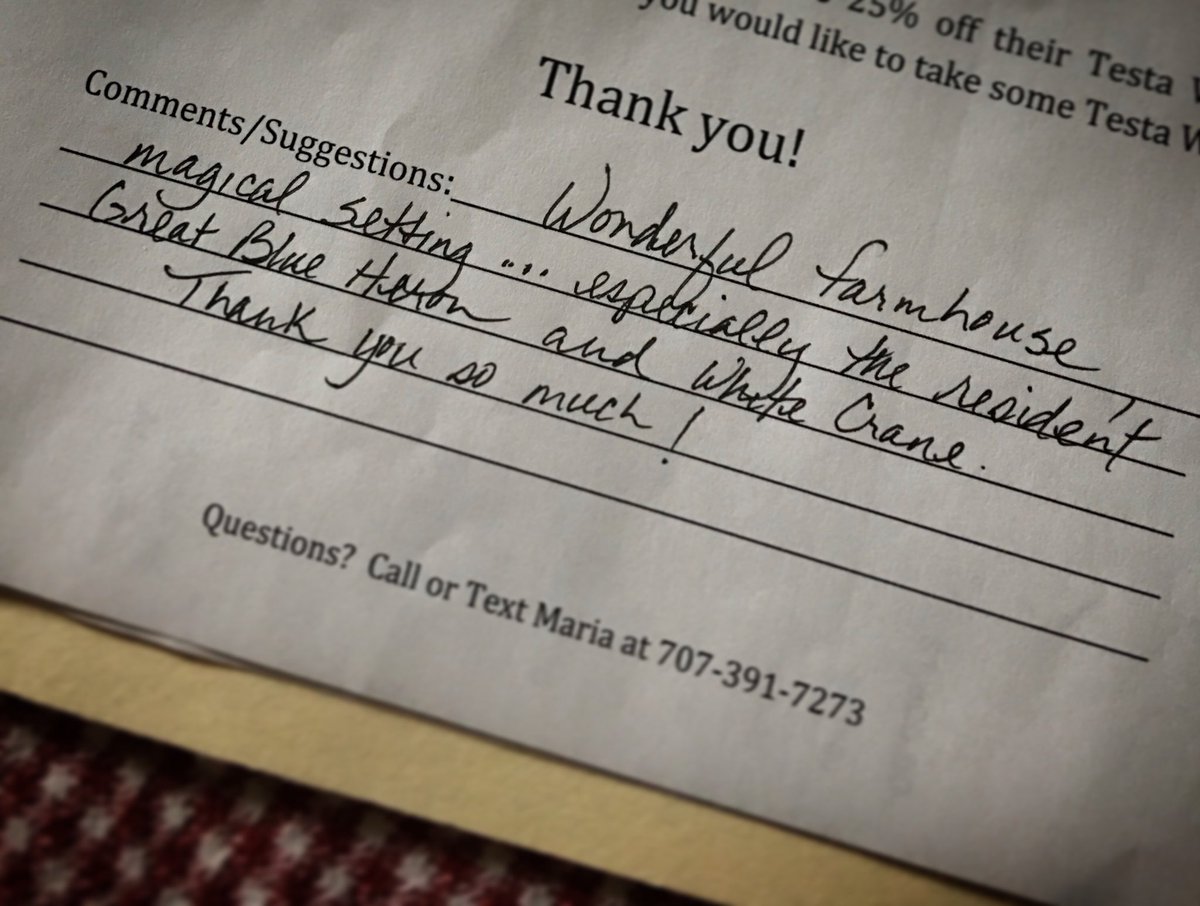 25% off their Testa
you would like to take some Testa
Thank you!
Comments/Suggestions: Wonderful farmhouse,
magical setting ... especially the resident
Great Blue Heron and White Crane.
Thank you so much!
Questions? Call or Text Maria at 707-391-7273